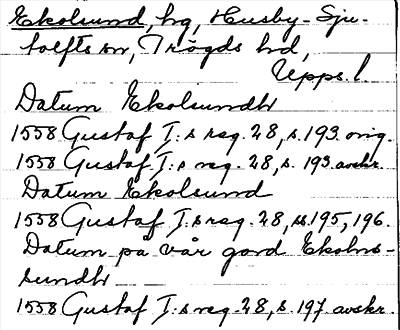 Ekolsund, hg, Husby-Sju-
tolfts sn, Trögds hd,
Upps. l.
Datum Ekolsundh
1558 Gustaf I:s reg. 28, s. 193 orig.
1558 Gustaf I:s reg. 28, s. 193 avskr.
Datum Ekolsund
1558 Gustaf I:s reg. 28, ss. 195, 196.
Datum på vår gord Ekolns-
sundh
1558 Gustaf I:s reg. 28, s. 197 avskr.